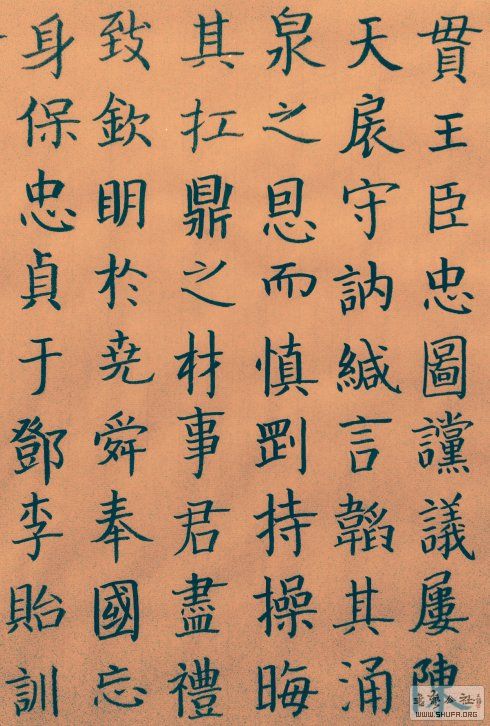 貫王臣忠圖讜議屢陳
天扆守訥緘言韜其涌
泉之思而慎剛持操晦
其扛鼎之材事君盡禮
致欽明於堯舜奉國忘
身保忠貞于鄧李貽訓
WWW.SHUFA.ORG